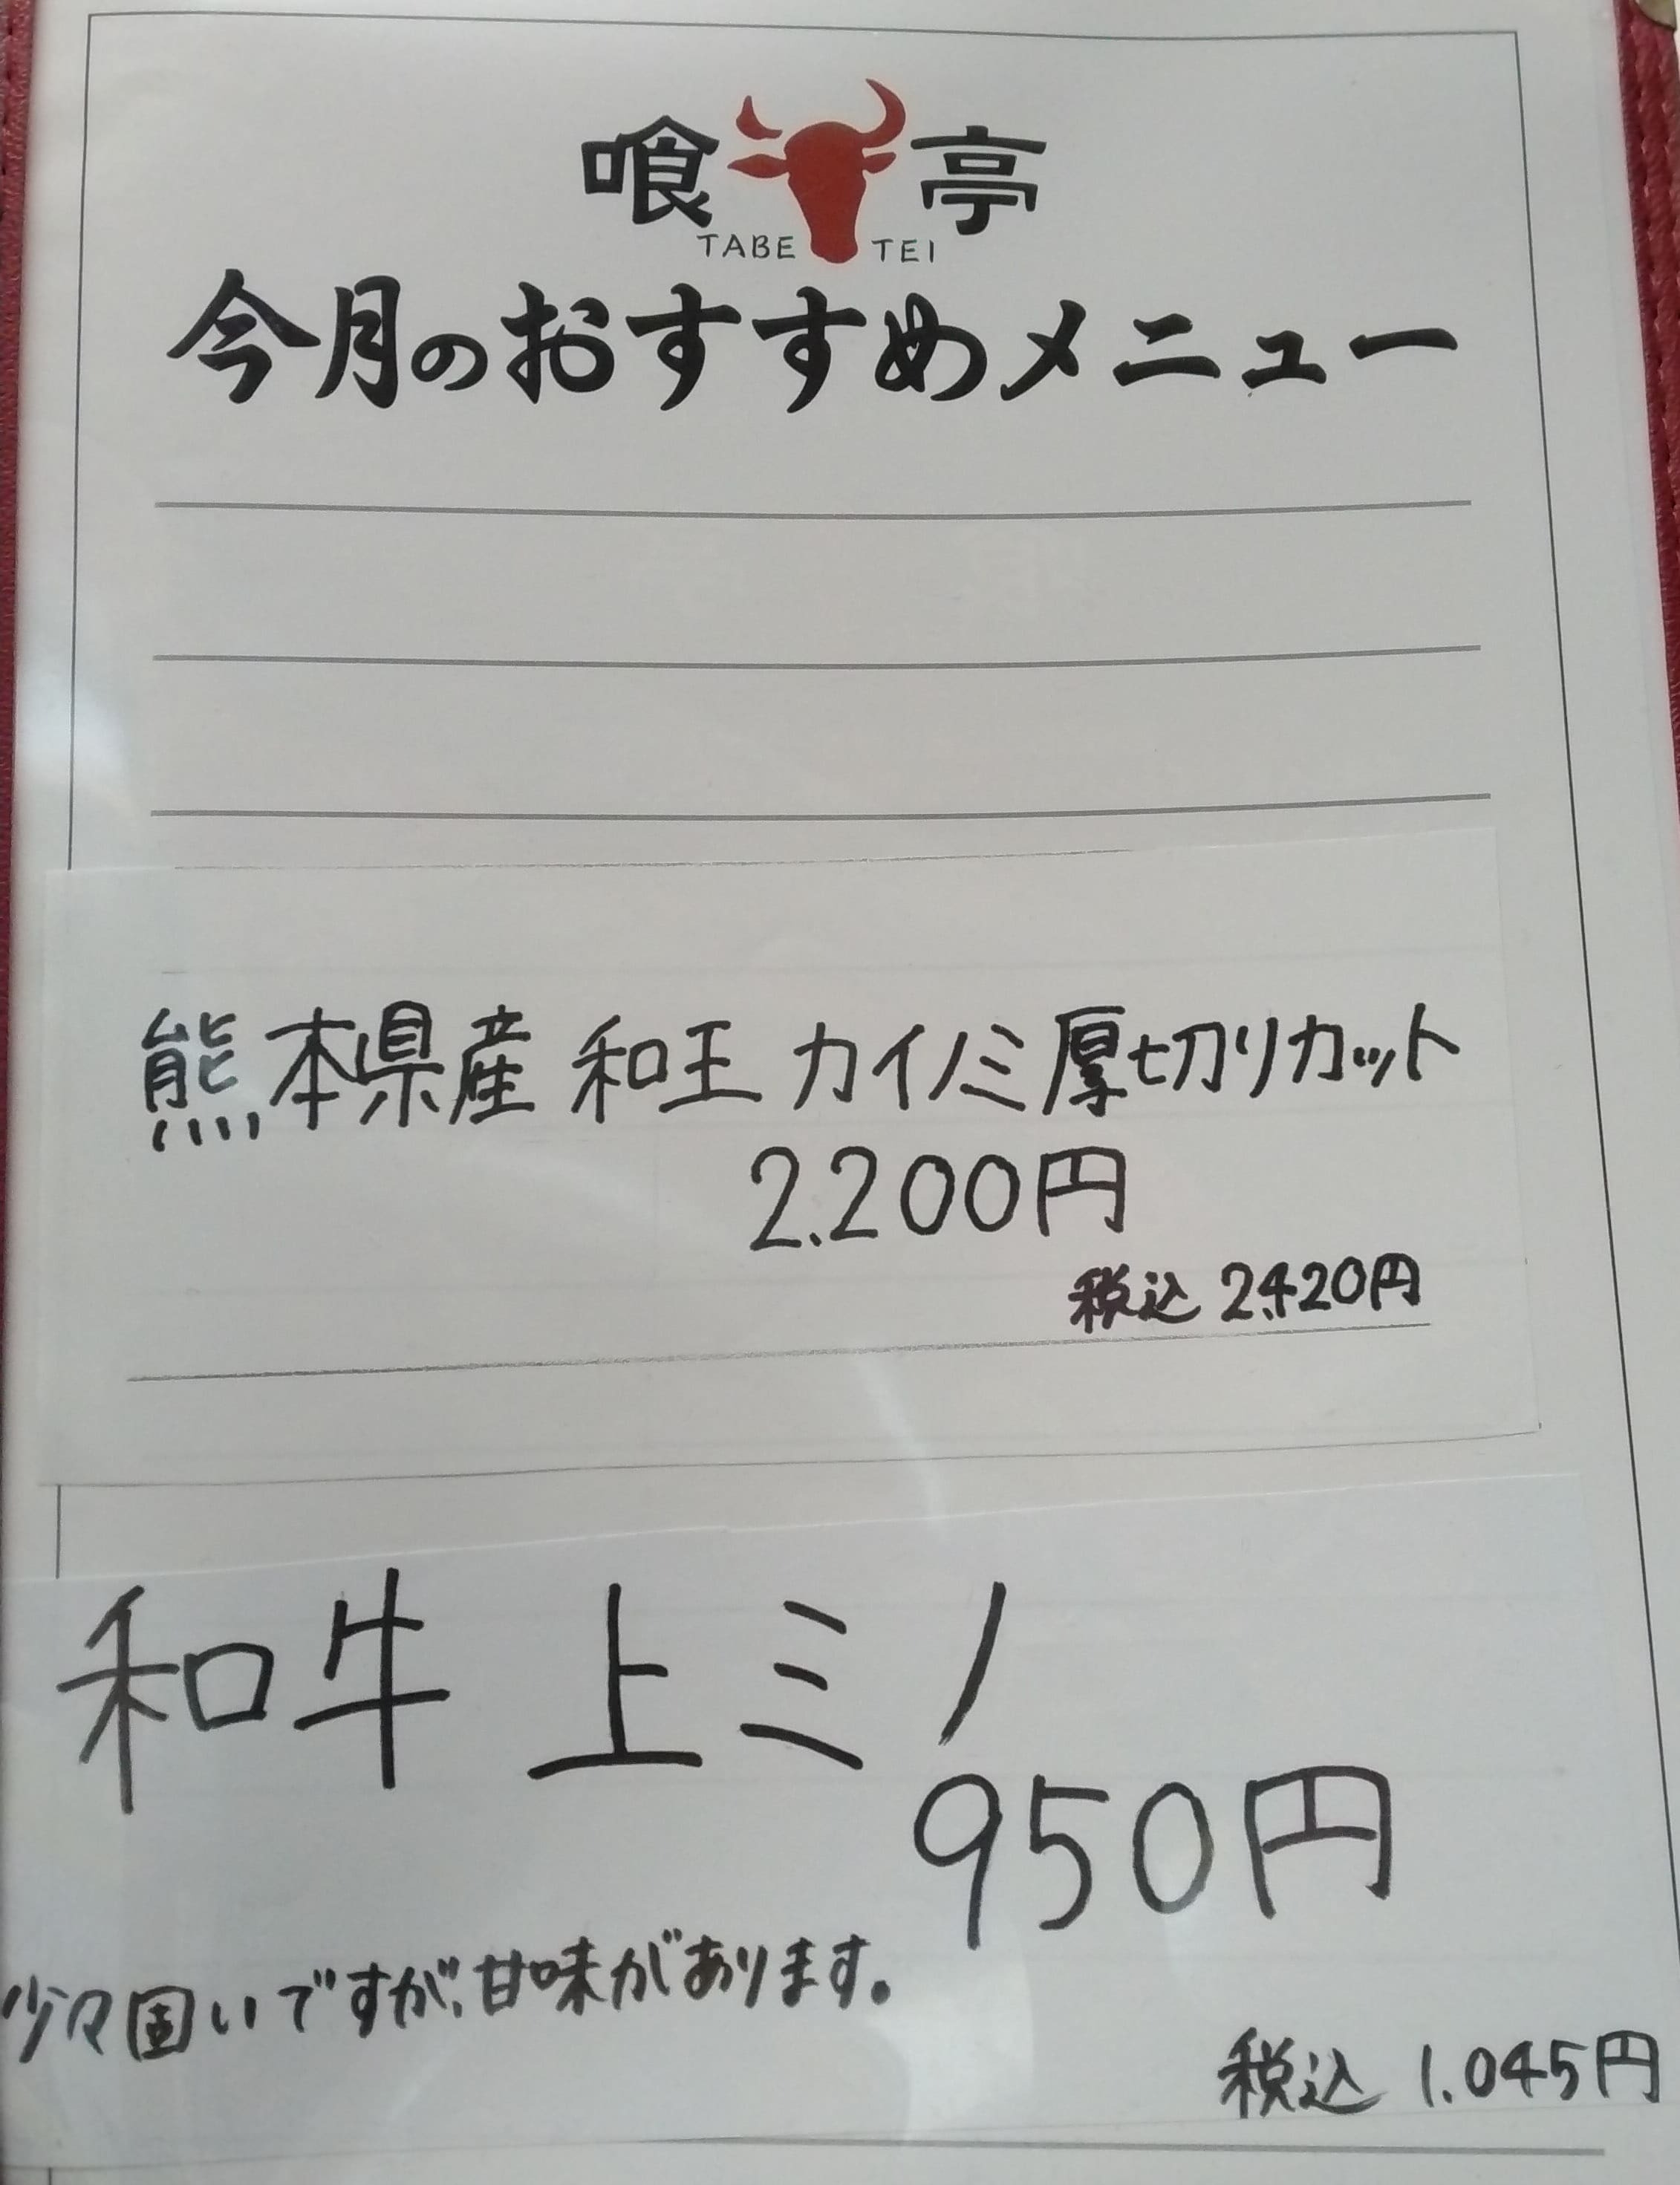 喰亭
TABE TEI
今月のおすすめメニュー
熊本県産 和王 カイノミ厚切りカット
2.200円
税込 2.420円
和牛 上ミノ
950円
少々固いですが、甘味があります。
税込 1.045円